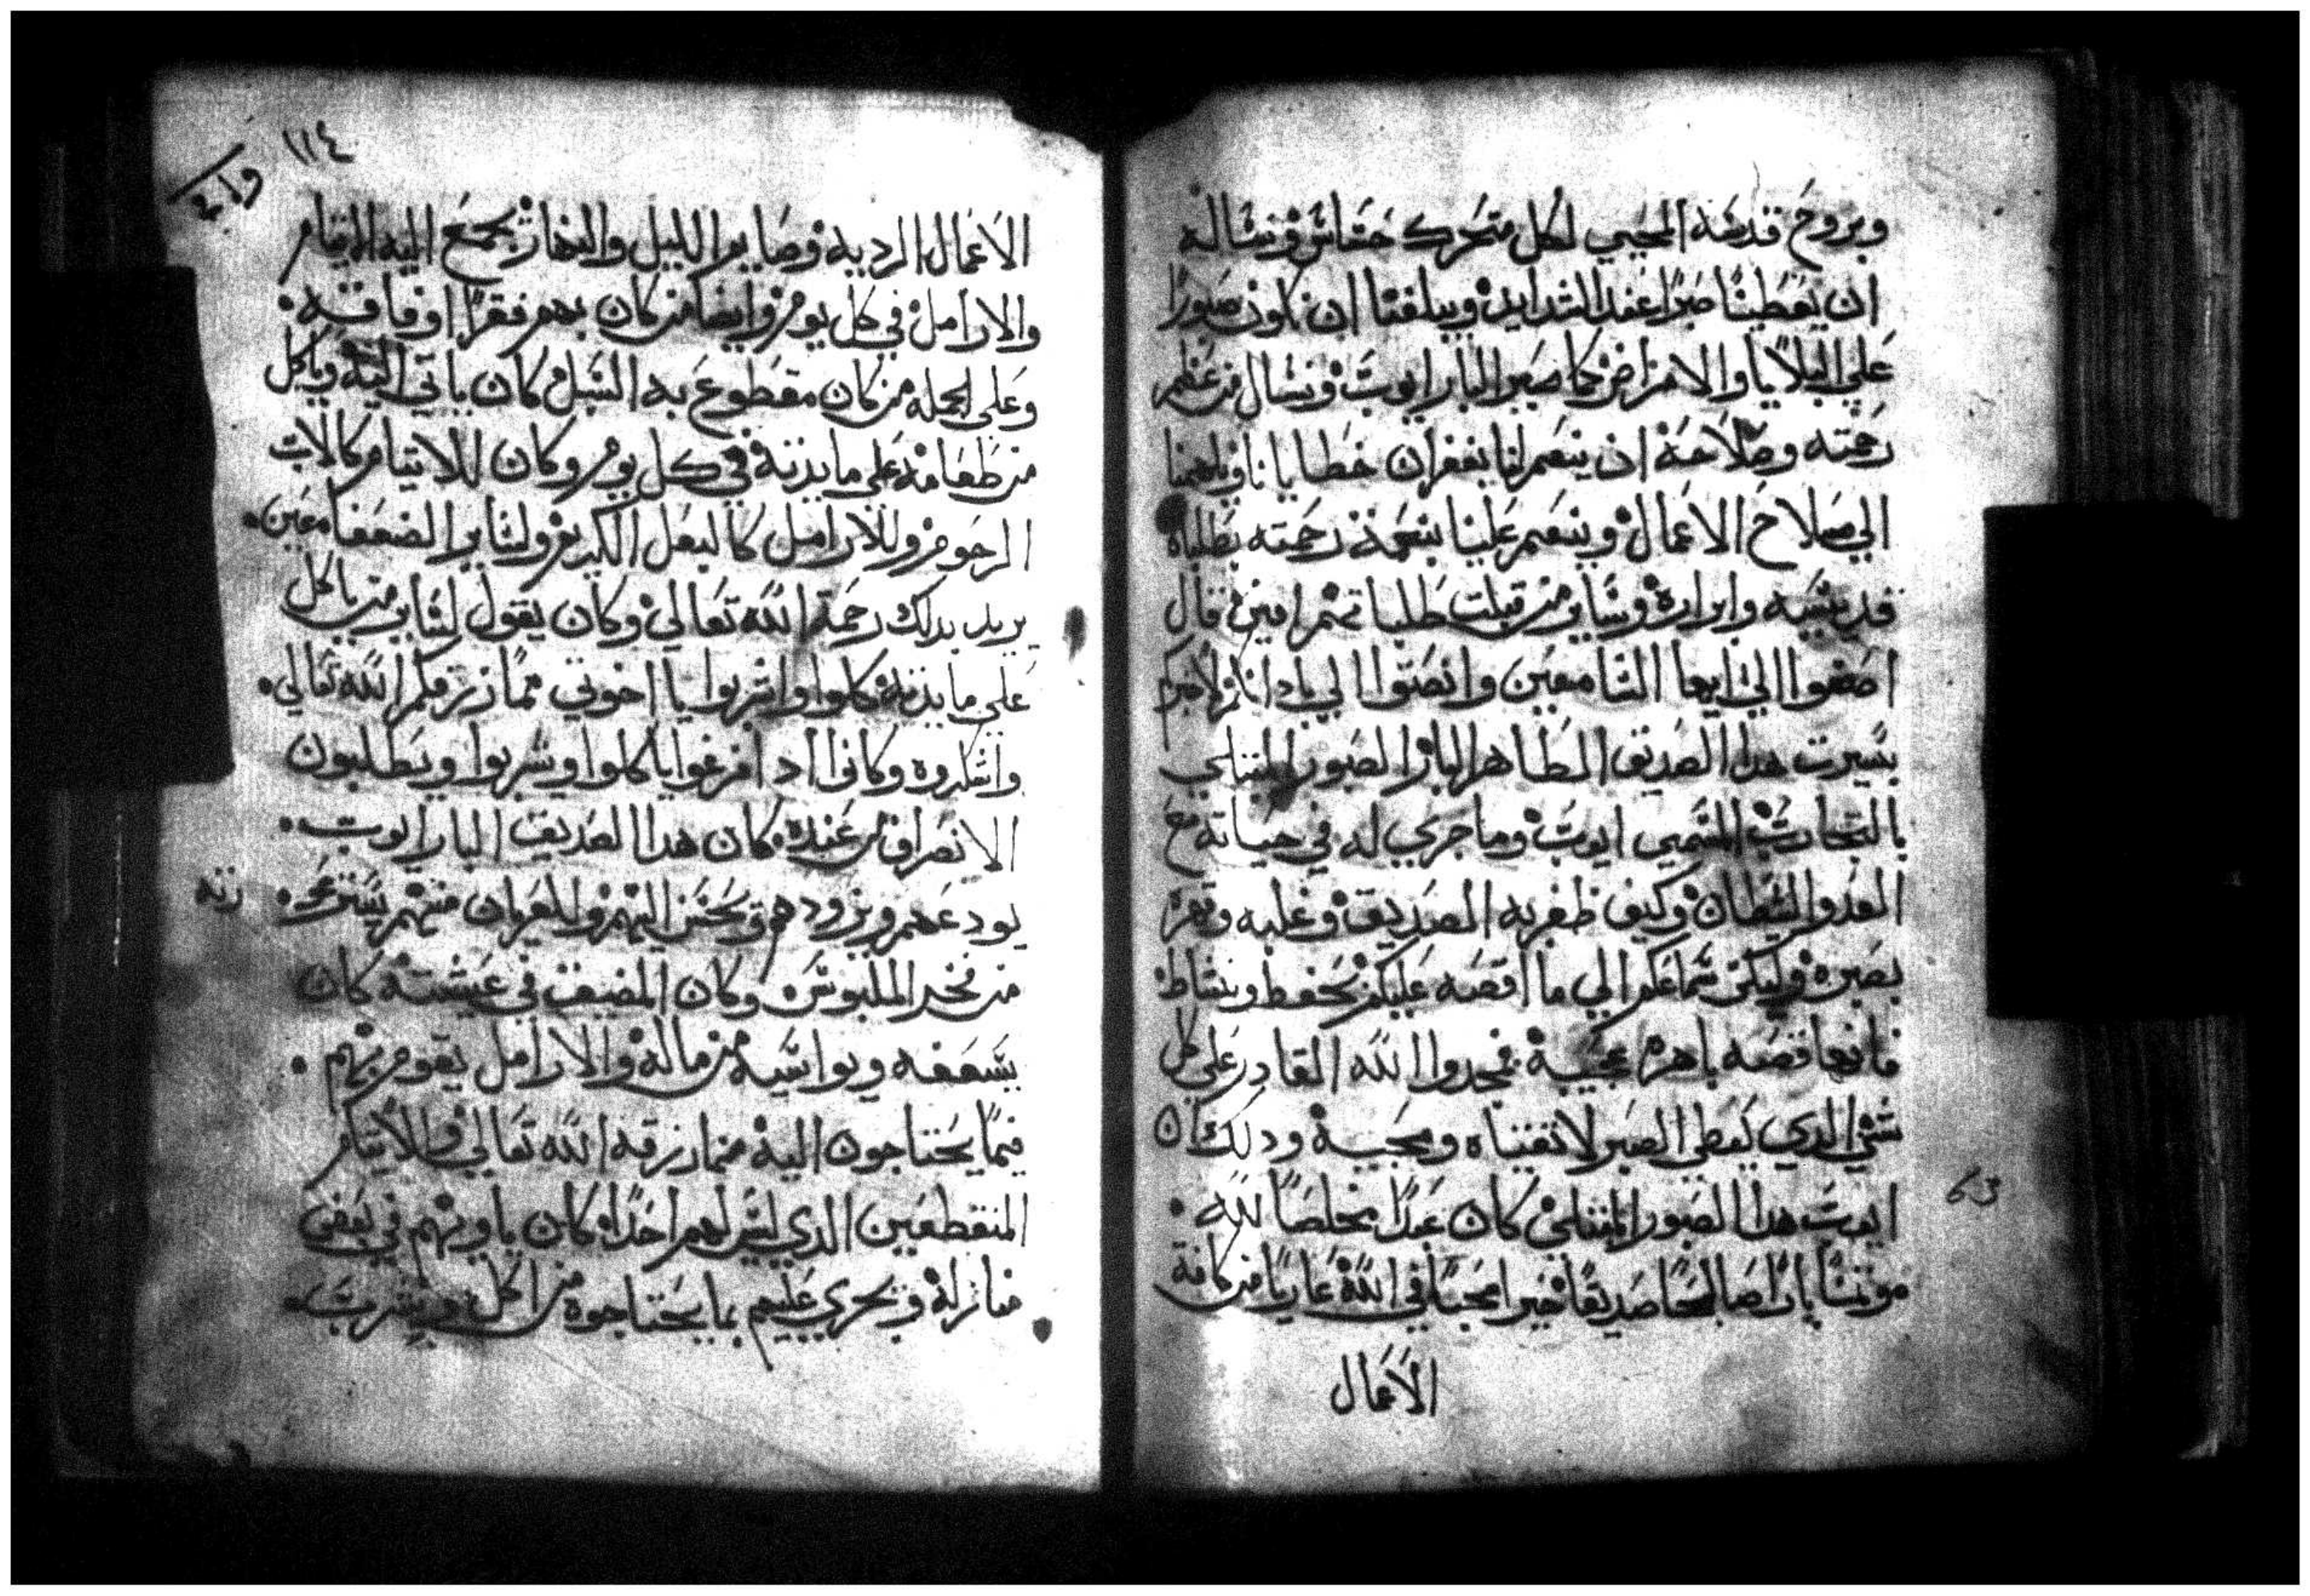 وبروح قدسه المحيي لكل متحرك حساس ونساله
ان يعطينا صبرًا عند الشدايد ويبلغنا ان نكون صبورًا
علي البلايا والامراض كما صبر البار ايوب ونسال من عظم
رحمته وصلاحه ان ينعم لنا بغفران خطايانا ويلهمنا
الي صلاح الاعمال وينعم علينا بنعمة رحمته بطلباة
قديسيه وابراره وساير من قبلت طلباتهم امين قال
اصغوا الي ايها السامعين وانصتوا الي باداتكم لاخبركم
بسيرت هدا الصديق الطاهر البار الصبور المبتلي
بالتجارب المسمي ايوب وما جري له في حياته مع
العدو الشيطان وكيف ظفر به الصديق وغلبه وقهره
بصبره وليكن سماعكم الي ما اقصه عليكم بحفظ ونشاط
فانها قصه باهره عجيبة فمجدوا الله القادر علي كل
شي الدي يعطي الصبر لاتقيناه ومحبيه ودلك ان
ايوب هدا الصبور المبتلي كان عبدًا مخلصًا لله
مونسًا بارًا صالحًا صديقًا خيرا محبًا في الله عاريًا من كافة
63
الاعمال
١١٤
الاعمال الرديه وصاير الليل والنهار يجمع اليه الايتام
والارامل في كل يوم وايضا من كان بهم فقرًا او فاقه
وعلي الجمله من كان مقطوع به السبل كان ياتي اليه وياكل
من طعامه علي مايدته في كل يوم وكان للايتام كالاب
الرحوم وللارامل كالبعل الكريم ولساير الضعفا معين
يريد بدلك رحمة الله تعالي وكان يقول لساير من ياكل
علي مايدته كلوا واشربوا يا اخوتي مما رزقكم الله تعالي
واشكروه وكانوا ادا فرغوا ياكلوا ويشربوا ويطلبون
الانصراف من عنده كان هدا الصديق البار ايوب
يودعهم ويزودهم ويحسن اليهم والعريان منهم يستر
من فخر الملبوس وكان المضيف في عيشته كان
يسعفه ويواسيه من ماله والارامل يقوم بهم
فيما يحتاجون اليه مما رزقه الله تعالي والايتام
المنقطعين الدي ليس لهم احدًا كان ياويهم في بعض
منازله ويجري عليهم بما يحتاجوه من اكل وشرب